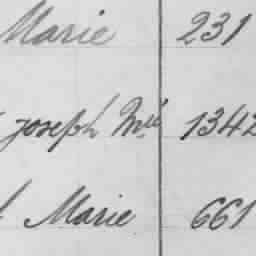 Marie 231
Joseph Mie 1342
Marie 661